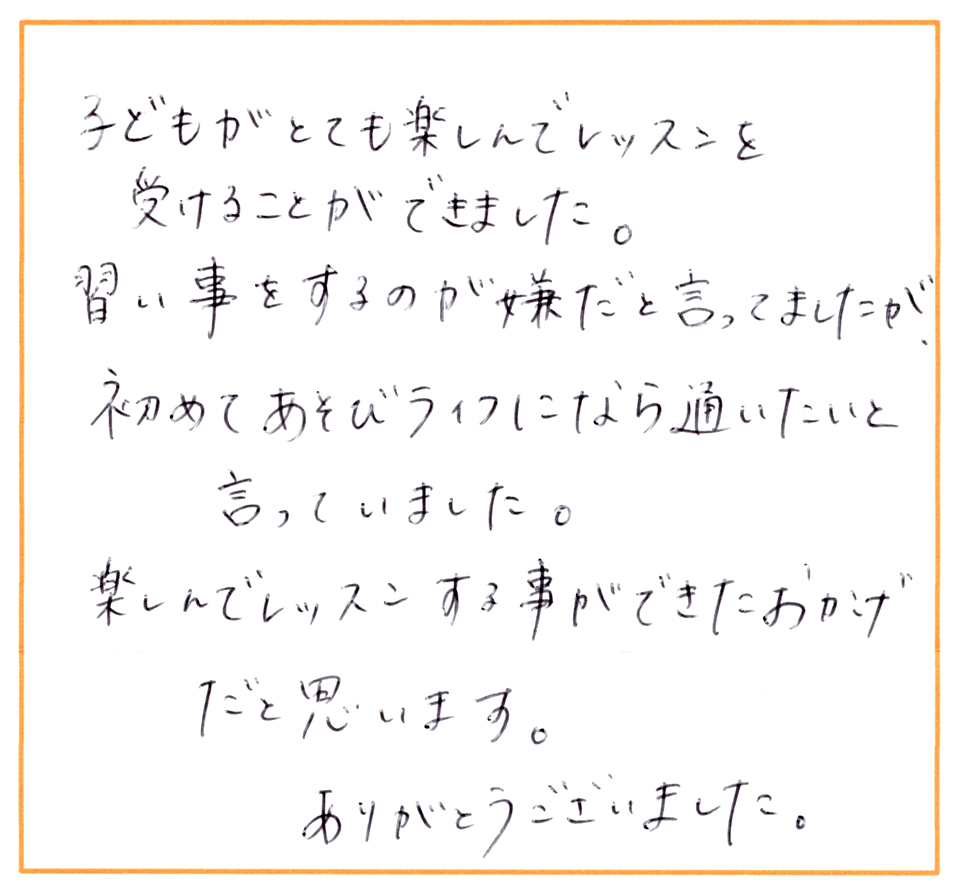 子どもがとても楽しんでレッスンを
受けることができました。
習い事をするのが嫌だと言ってましたが、
初めてあそびライフになら通いたいと
言っていました。
楽しんでレッスンする事ができたおかげ
だと思います。
ありがとうございました。